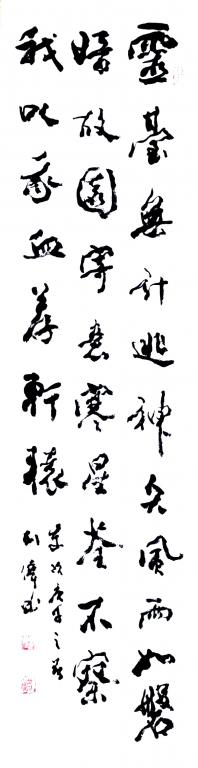 靈臺無計逃神矢風雨如磐
暗故園寄意寒星荃不察
我以我血荐軒轅